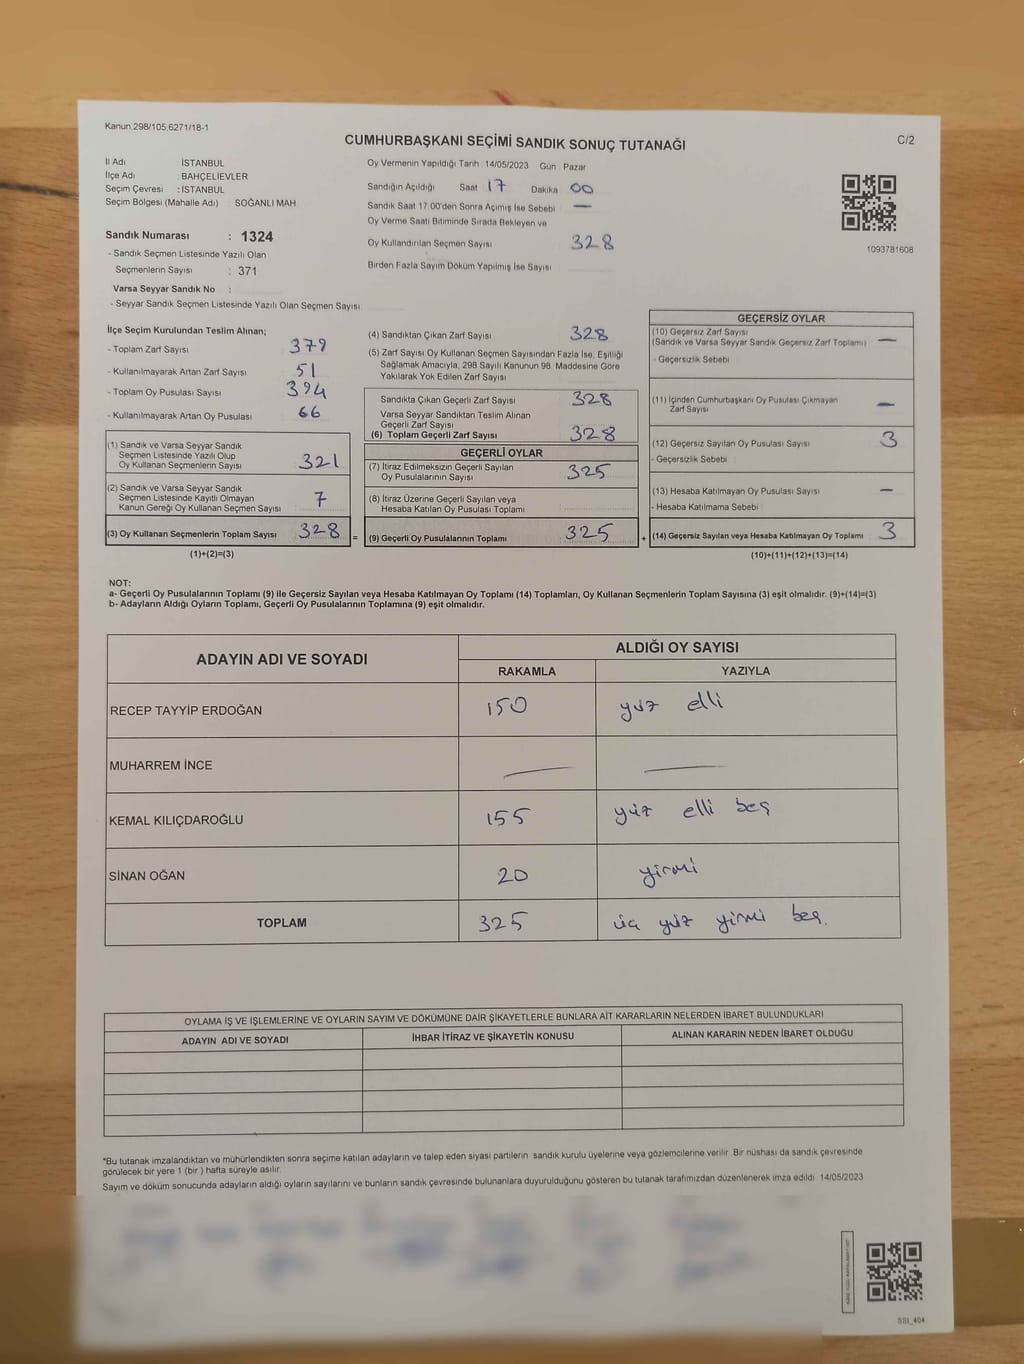 Kanun 298/105 6271/18-1
CUMHURBAŞKANI SEÇİMİ SANDIK SONUÇ TUTANAĞI
C/2
İl Adı İSTANBUL
İlçe Adı : BAHÇELİEVLER
Seçim Çevresi : İSTANBUL
Seçim Bölgesi (Mahalle Adı) SOĞANLI MAH
Sandık Numarası : 1324
- Sandık Seçmen Listesinde Yazılı Olan
Seçmenlerin Sayısı : 371
Varsa Seyyar Sandık No :
- Seyyar Sandık Seçmen Listesinde Yazılı Olan Seçmen Sayısı
Oy Vermenin Yapıldığı Tarih 14/05/2023 Gün Pazar
Sandığın Açıldığı Saat 17 Dakika 00
Sandık Saat 17 00'den Sonra Açımış İse Sebebi —
Oy Verme Saati Bitiminde Sırada Bekleyen ve
Oy Kullandırılan Seçmen Sayısı 328
Birden Fazla Sayım Döküm Yapılmış İse Sayısı
1093781608
İlçe Seçim Kurulundan Teslim Alınan;
- Toplam Zarf Sayısı 379
- Kullanılmayarak Artan Zarf Sayısı 51
- Toplam Oy Pusulası Sayısı 394
- Kullanılmayarak Artan Oy Pusulası 66
(1) Sandık ve Varsa Seyyar Sandık
Seçmen Listesinde Yazılı Olup
Oy Kullanan Seçmenlerin Sayısı 321
(2) Sandık ve Varsa Seyyar Sandık
Seçmen Listesinde Kayıtlı Olmayan
Kanun Gereği Oy Kullanan Seçmen Sayısı 7
(3) Oy Kullanan Seçmenlerin Toplam Sayısı 328 =
(1)+(2)=(3)
(4) Sandıktan Çıkan Zarf Sayısı 328
(5) Zarf Sayısı Oy Kullanan Seçmen Sayısından Fazla İse, Eşitliği
Sağlamak Amacıyla, 298 Sayılı Kanunun 98. Maddesine Göre
Yakılarak Yok Edilen Zarf Sayısı
Sandıkta Çıkan Geçerli Zarf Sayısı 328
Varsa Seyyar Sandıktan Teslim Alınan
Geçerli Zarf Sayısı
(6) Toplam Geçerli Zarf Sayısı 328
GEÇERLİ OYLAR
(7) İtiraz Edilmeksizin Geçerli Sayılan
Oy Pusulalarının Sayısı 325
(8) İtiraz Üzerine Geçerli Sayılan veya
Hesaba Katılan Oy Pusulası Toplamı
(9) Geçerli Oy Pusulalarının Toplamı 325 +
GEÇERSİZ OYLAR
(10) Geçersiz Zarf Sayısı
(Sandık ve Varsa Seyyar Sandık Geçersiz Zarf Toplamı) —
- Geçersizlik Sebebi
(11) İçinden Cumhurbaşkanı Oy Pusulası Çıkmayan
Zarf Sayısı —
(12) Geçersiz Sayılan Oy Pusulası Sayısı 3
- Geçersizlik Sebebi
(13) Hesaba Katılmayan Oy Pusulası Sayısı —
- Hesaba Katılmama Sebebi
(14) Geçersiz Sayılan veya Hesaba Katılmayan Oy Toplamı 3
(10)+(11)+(12)+(13)=(14)
NOT:
a- Geçerli Oy Pusulalarının Toplamı (9) ile Geçersiz Sayılan veya Hesaba Katılmayan Oy Toplamı (14) Toplamları, Oy Kullanan Seçmenlerin Toplam Sayısına (3) eşit olmalıdır. (9)+(14)=(3)
b- Adayların Aldığı Oyların Toplamı, Geçerli Oy Pusulalarının Toplamına (9) eşit olmalıdır.
ADAYIN ADI VE SOYADI ALDIĞI OY SAYISI
RAKAMLA YAZIYLA
RECEP TAYYİP ERDOĞAN 150 yüz elli
MUHARREM İNCE — —
KEMAL KILIÇDAROĞLU 155 yüz elli beş
SİNAN OĞAN 20 yirmi
TOPLAM 325 üç yüz yirmi beş.
OYLAMA İŞ VE İŞLEMLERİNE VE OYLARIN SAYIM VE DÖKÜMÜNE DAİR ŞİKAYETLERLE BUNLARA AİT KARARLARIN NELERDEN İBARET BULUNDUKLARI
ADAYIN ADI VE SOYADI İHBAR İTİRAZ VE ŞİKAYETİN KONUSU ALINAN KARARIN NEDEN İBARET OLDUĞU
*Bu tutanak imzalandıktan ve mühürlendikten sonra seçime katılan adayların ve talep eden siyasi partilerin sandık kurulu üyelerine veya gözlemcilerine verilir Bir nüshası da sandık çevresinde
görülecek bir yere 1 (bir ) hafta süreyle asılır.
Sayım ve döküm sonucunda adayların aldığı oyların sayılarını ve bunların sandık çevresinde bulunanlara duyurulduğunu gösteren bu tutanak tarafımızdan düzenlenerek imza edildi 14/05/2023
SSI_404